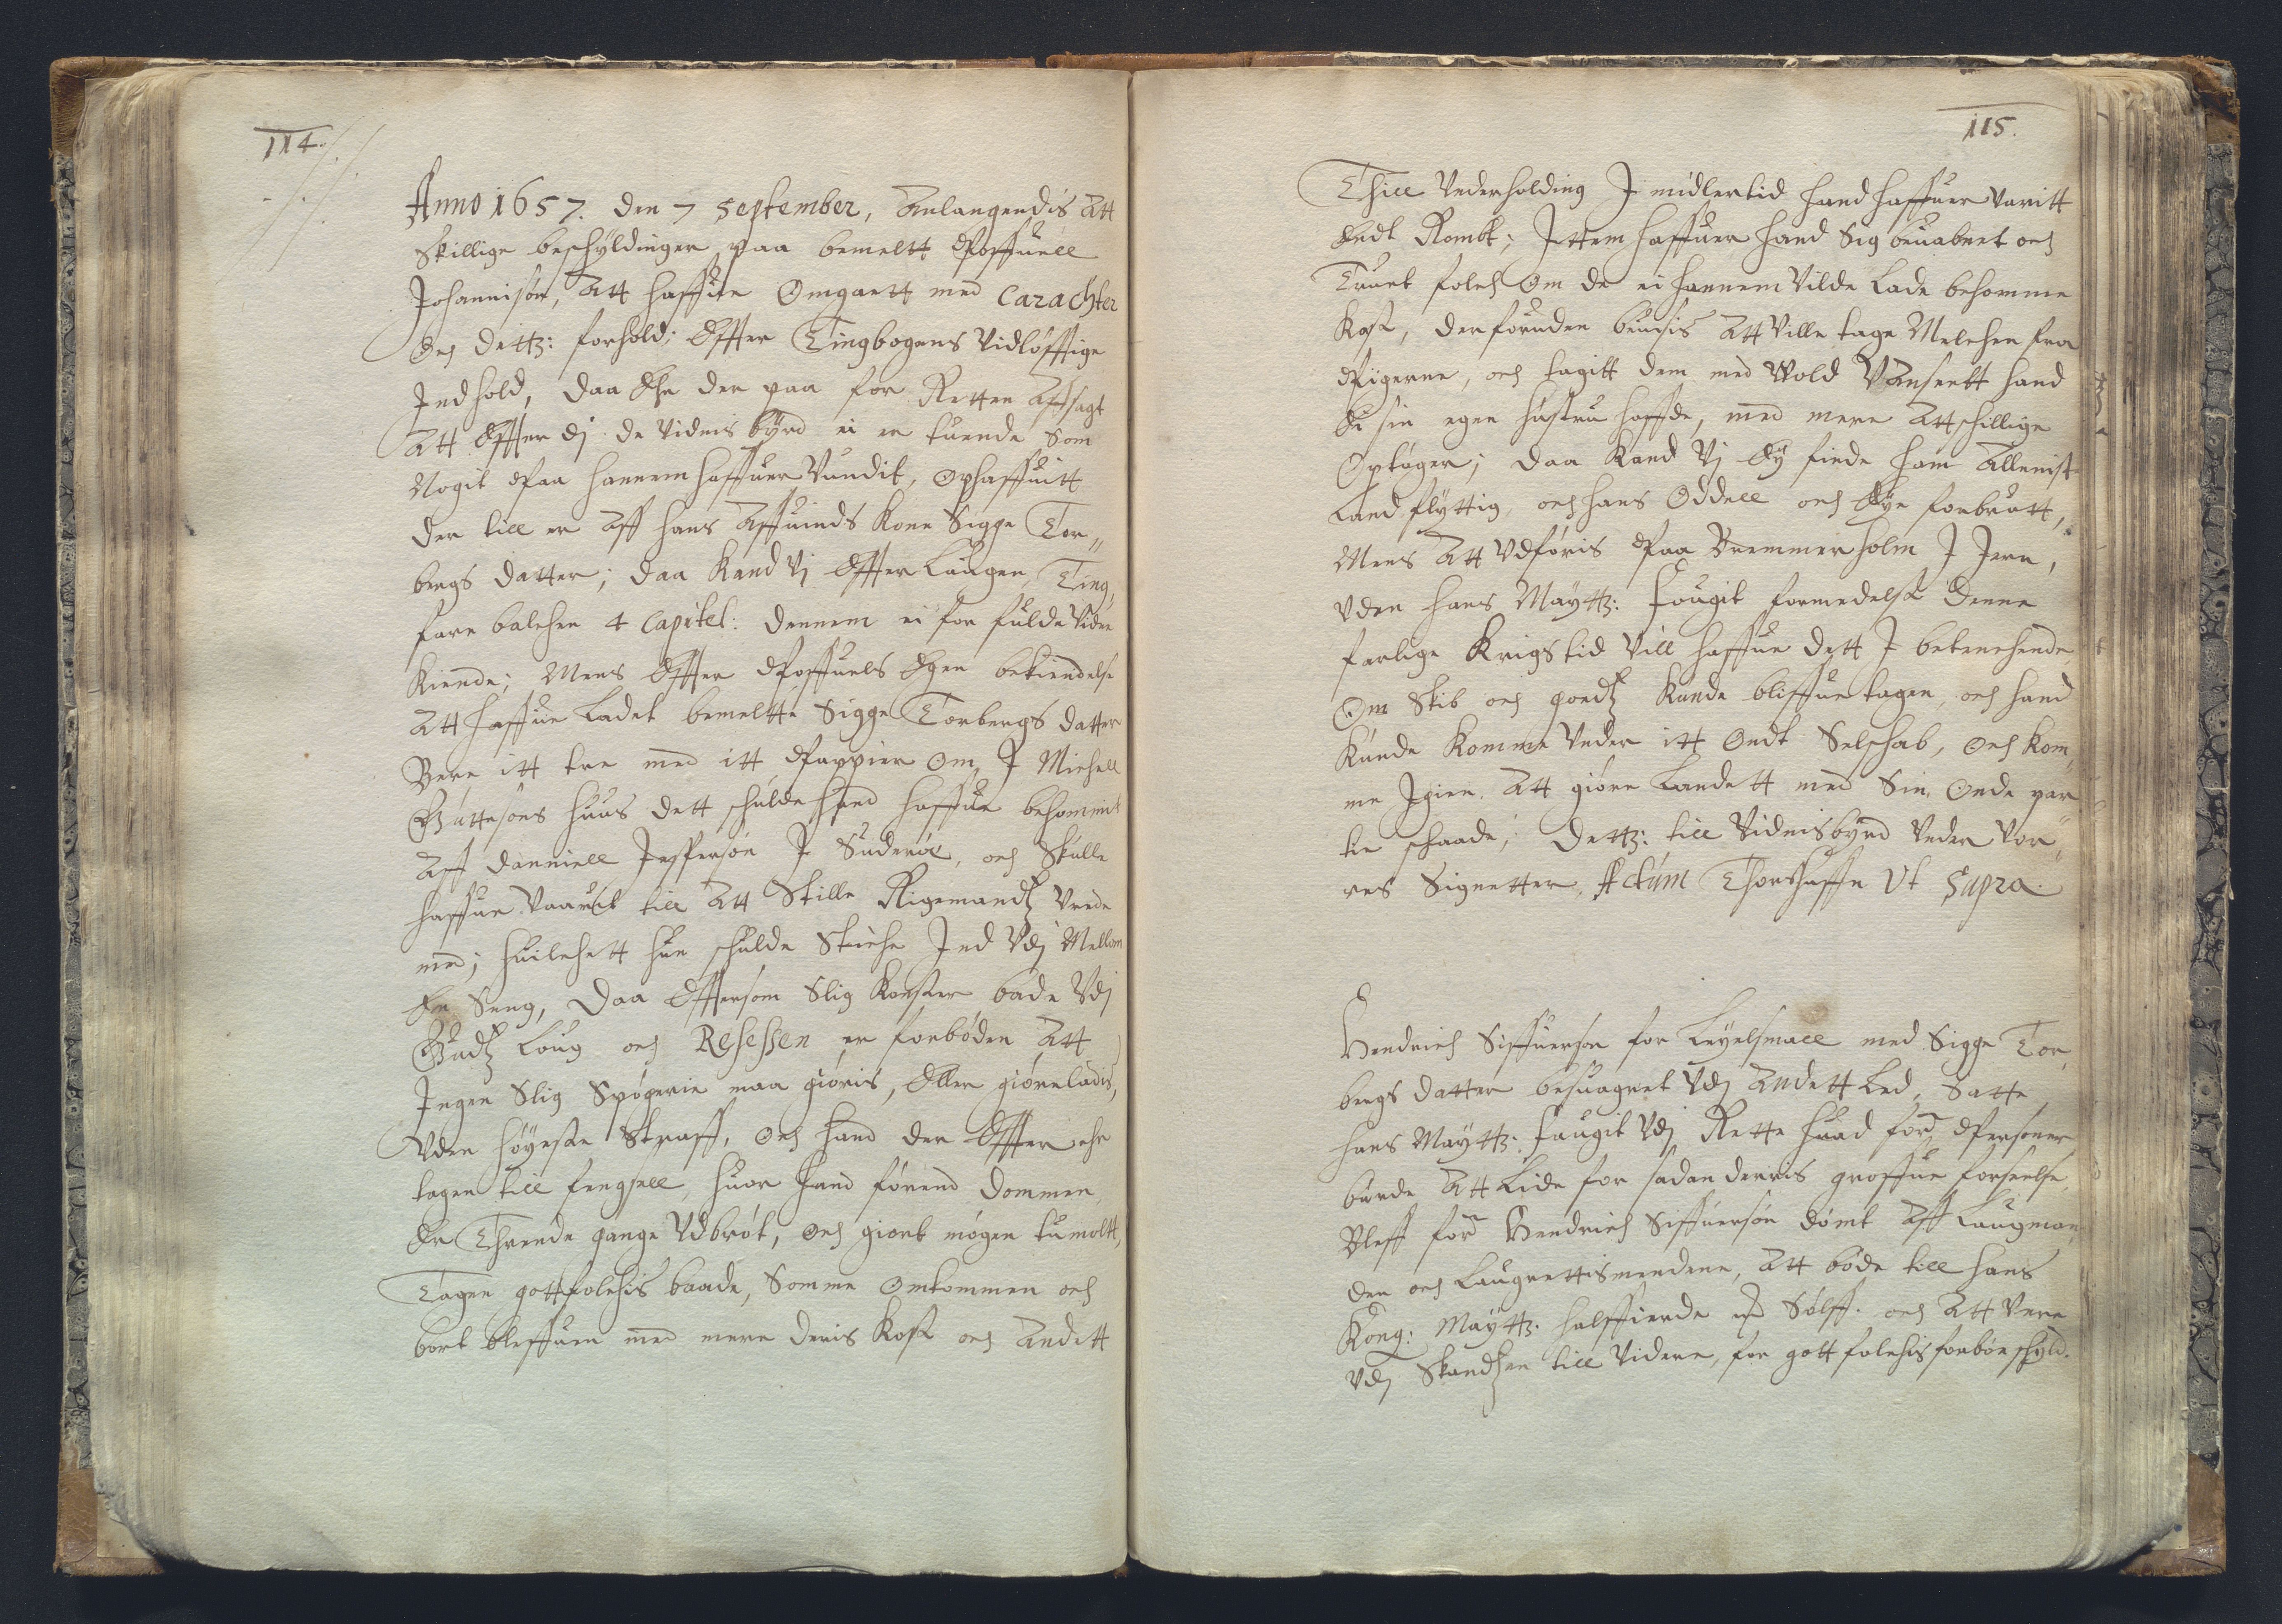 114.
Anno 1657. den 7 September, Anlangendis Att
Skillige beschyldinger paa bemeltt Poffuell
Johannisøn, Att haffue Omgaett med Carachter
Och dettz: forhold; Effter Tingbogens Vidløfftige
Indhold, daa Ehr der paa for Retten Affsagt
Att Effter dj de Vidnis byrd ei er tuende Som
Nogit Paa hannem haffuer Vundit, Ophaffuitt
der till er Aff hans Affuinds Kone Sigge Tor„
bergs datter; daa Kand Vj Effter Laugen, Ting,
fare balchen 4 Capitel: dennem ei for fulde Vidne
Kiende; Mens Effter Poffuels Egen bekiendelse
Att haffue Ladet bemeltte Sigge Torbergs datter
Bere itt tre med itt Pappier Om, J Michell
Guttesøns huus dett schulde hand haffue bekommit
Aff Danniell Jespersøn J Suderøe, och Skulle
haffue Vaarit till Att Stille Rigemandtz Vrede
med; huilchett hun schulde Steche Ind Vdj Mellom
En Seng, Daa Effersom Slig Konster bade Vdj
Gudtz Loug och Resessen er forbøden Att
Ingen Slig Spøgerie maa giøris, Eller giøre ladis,
Vden høyeste Straff, Och hand der Effter ehr
tagen till fengsell, huor hand førend Dommen,
Er Thrende gange Vdbrøt, Och giort møgen tumolt,
Tagen gottfolchis baade, Somme Omkommen och
bort bleffuen med mere deris Kost och Andett
115.
Thill Vnderholding J midlertid hand haffuer Varitt
Vndt Rombt; Ittem haffuer hand Sig beuabnet och
Truet folch Om de ei hannem Vilde Lade bekomme
Kost, der foruden beuisis Att Ville tage Melchen fra
Pigerne, och tagitt dem med Wold Vanseett hand
Eu sin egen hustru haffde, med mere Att schillige
Optøger; daa Kand Vj Ey finde ham Allenist
Landflyttig, och hans Oddell och Eye forbrutt,
Mens Att Vdføris Paa Bremmerholm J Jern,
Vden hans Maytz: Fougit formedelst denne
farlige Krigs tid Vill haffue dett J betenchende,
Om Skib och goedtz Kunde bliffue tagen, och hand
Kunde Komme Vnder itt Ondt Selschab, och Kom„
me Igien Att giøre Landett med Sin Onde par„
tie schaade; Dettz: till Vidnisbyrd Vnder Vor„
res Signetter, Actum Thorshaffn Vt Supra.
Hendrich Siffuersøn for Leyelsmaal med Sigge Tor„
bergs datter besuagret Vdj Andett Led, Satte
hans Maytz: Faugit Vdj Rette huad for: Personer
burde Att Lide for sadan derris groffue forseelse
Bleff for: Hendrich Siffuersøn dømt Aff Laugman„
den och Laugrettismendene, Att bøde till hans
Kong: Maytz: halffierde Sølff. och Att Vere
Vdj Skandtzen till Videre, for gott folchis forbøn schyld.